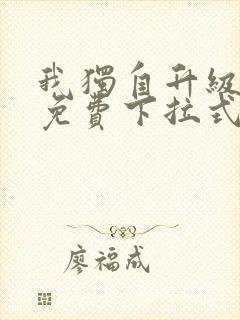 我獨自升級
免費下拉式
廖福成